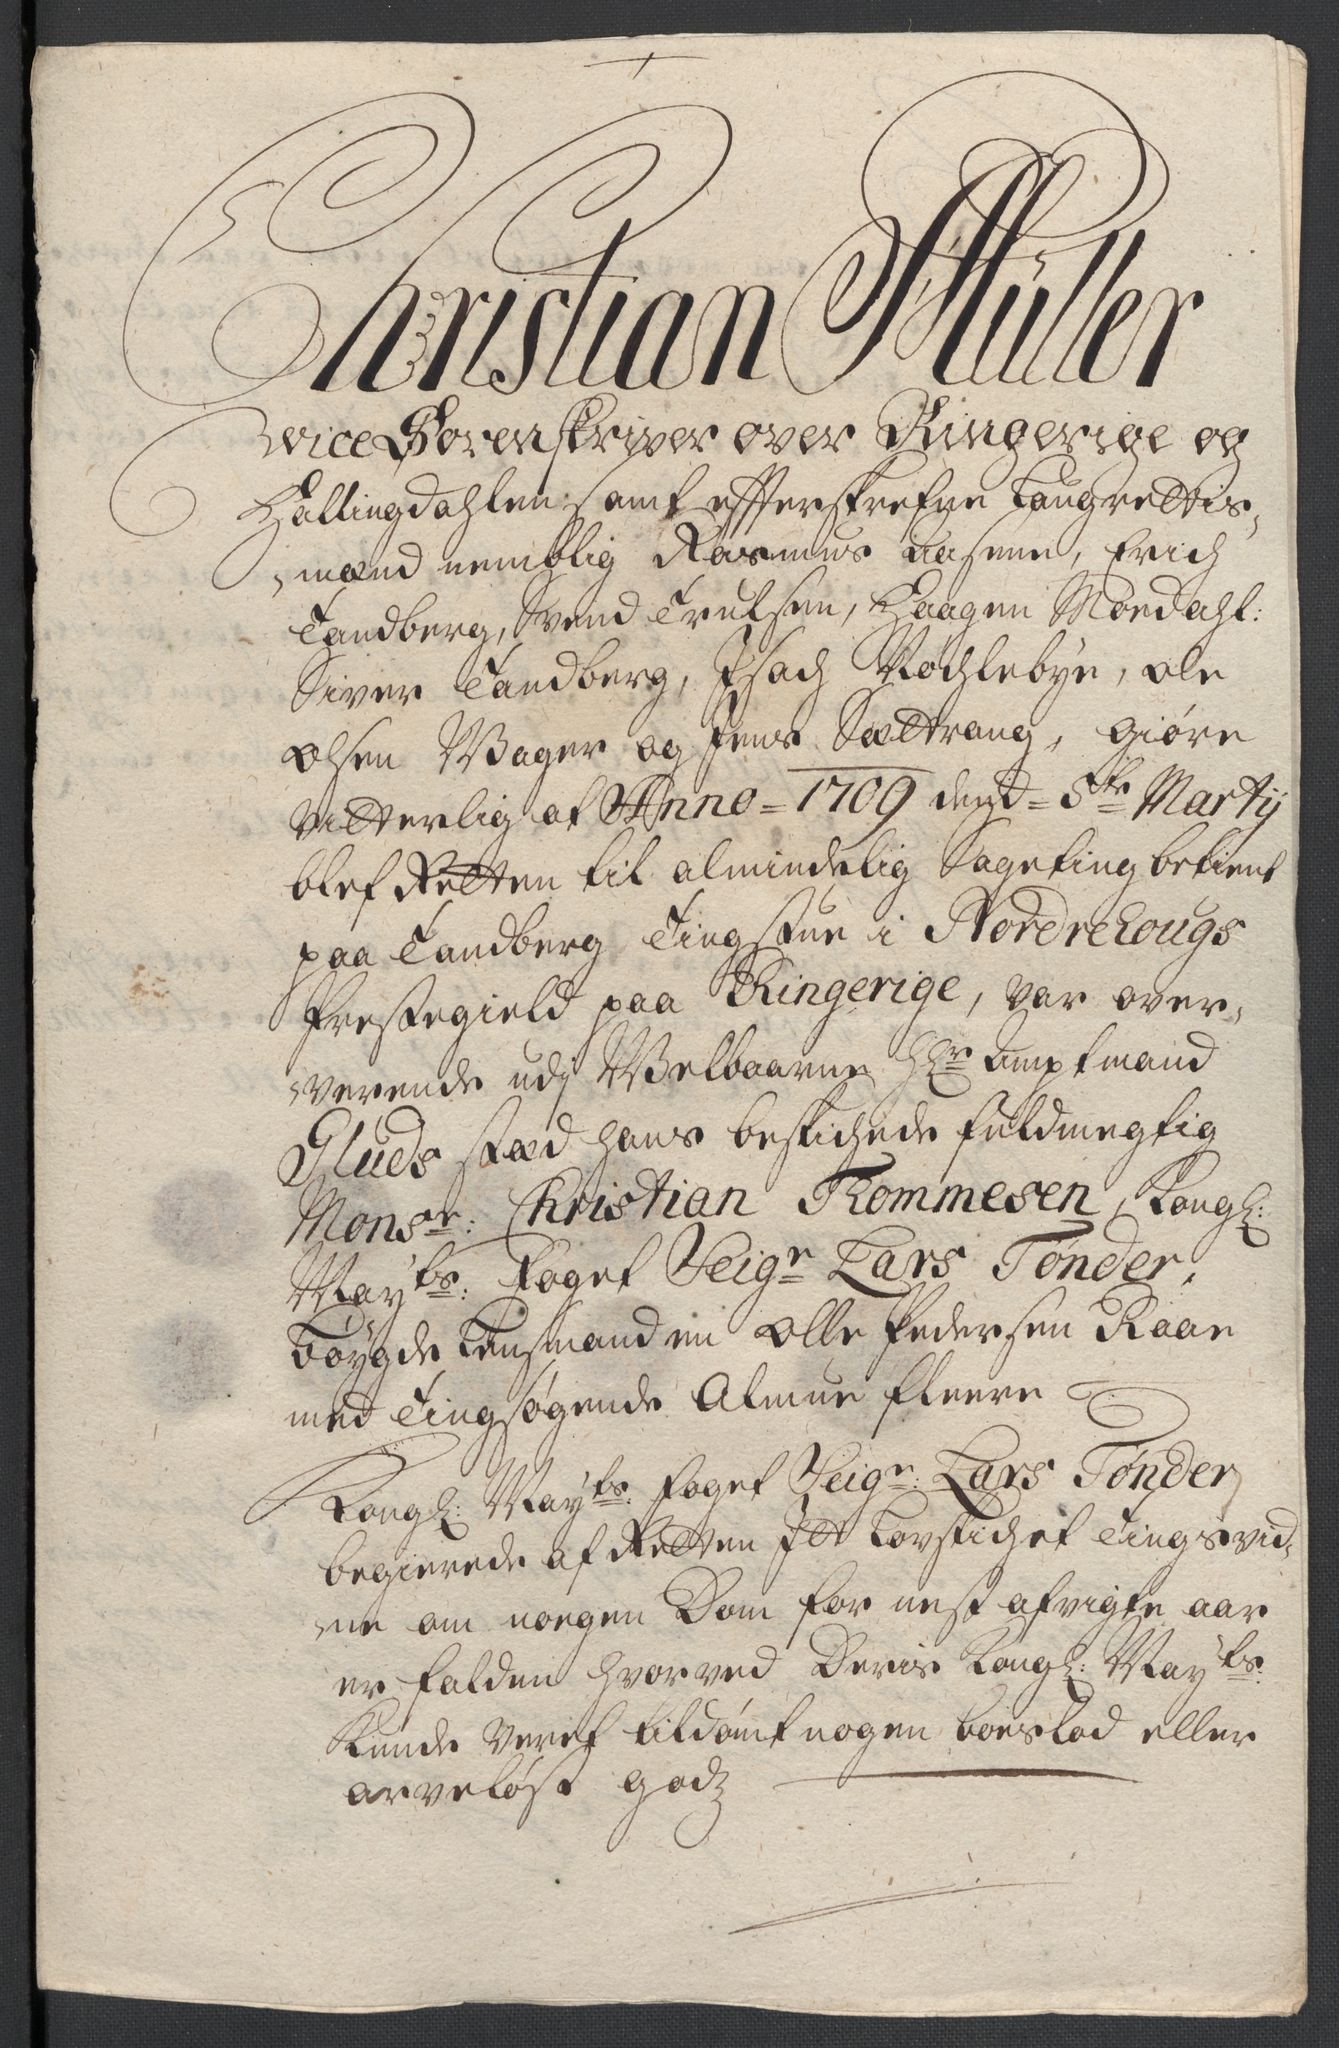 Christian Müller
vice Sorenskriver over Ringerige og
Hallingdahlen, samt effterskrefne Laugrettis-
mænd nemblig Rasmus Aasene, Erich
Tandberg, Svend Trulsen, Haagen Moedahl:
Siver Tandberg, Isach Røchlebye, Ole
Olsen Wager og Jens Sættrang, giøre
vitterlig at Anno = 1709 dend = 5te Martij
blef Retten til almindelig Sageting betient
paa Tandberg Tingstue i Nordrehougs
Prestegield paa Ringerige, var over-
verende udj Welbaarne Hr Amptmand
Gluds stæd hans beskichede fuldmegtig
Monsr: Christian Tommesen, Kongl:
Mayts: Foget Seigr Lars Tønder,
Bøygde Lensmanden Olle Pedersen Raae
med Tingsøgende Almue fleere
Kongl: Mayts: Foget Seigr: Lars Tønder
begierede af Retten Itt Lovskichet Tingsvid-
ne om noegen Dom for nest afvigte aar
er falden hvorved Deris Kongl: Mayts:
Kunde veret tildømt nogen boeslod eller
arveløst godz